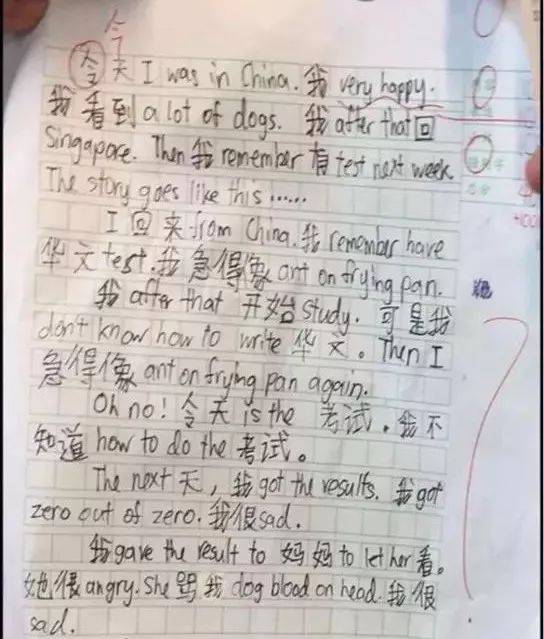 今
令天 I was in China. 我 very happy.
我看到 a lot of dogs. 我 after that 回
Singapore. Then 我 remember 有 test next week.
The story goes like this ......
I 回来 from China. 我 remember have
华文 test. 我急得像 ant on frying pan.
我 after that 开始 study. 可是我
don't know how to write 华文。 Then I
急得像 ant on frying pan again.
Oh no! 令天 is the 考试. 我不
知道 how to do the 考试。
The next 天, 我 got the results. 我 got
zero out of zero. 我很 sad.
我 gave the result to 妈妈 to let her 看。
她很 angry. She 骂我 dog blood on head. 我很
sad.